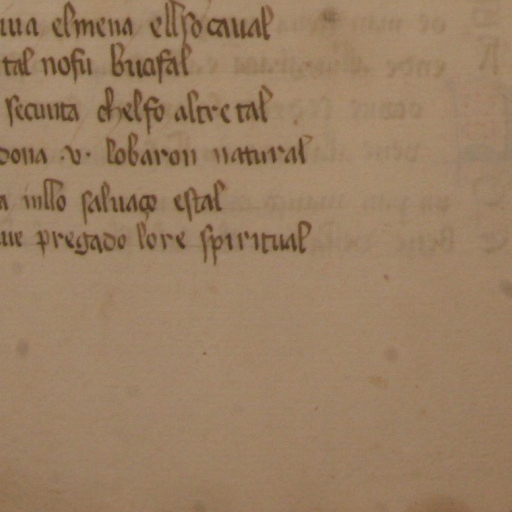 uua elmena ellso caual
tal nosu bucifal
secunta chelfo altre tal
dona .v. lobaron natural
a inllo saluaço estal
ue pregado lore spiritual